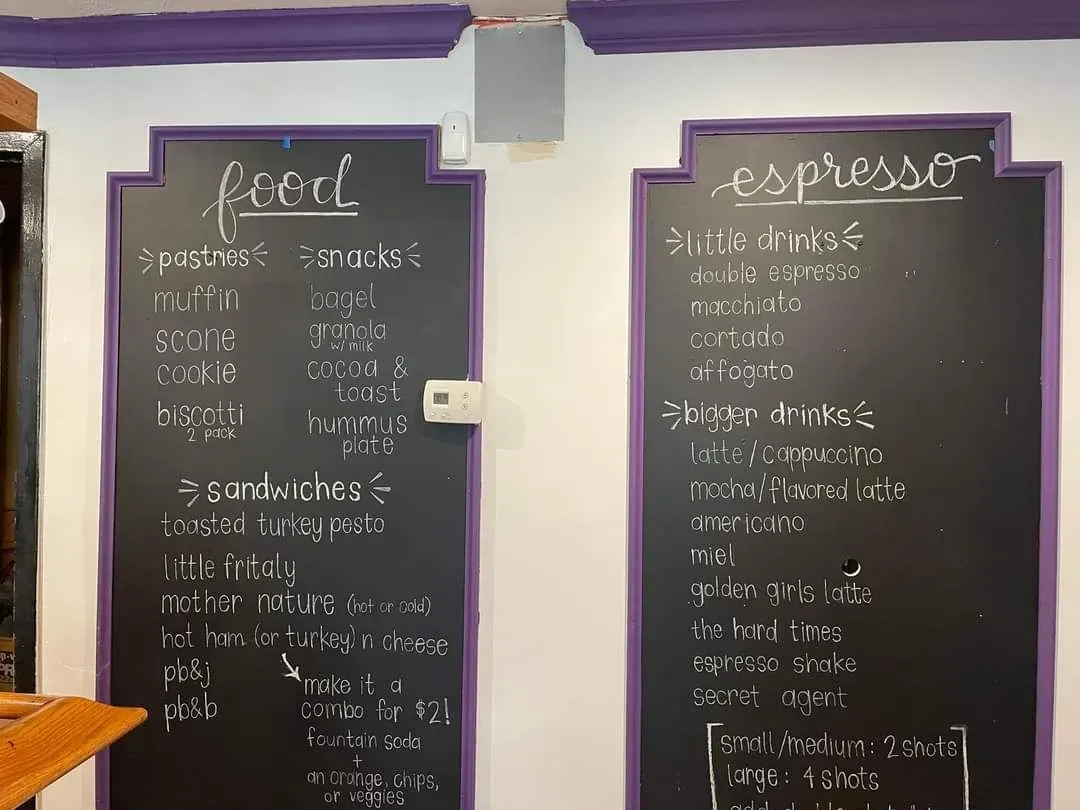 food
pastries
muffin
scone
cookie
biscotti
2 pack
snacks
bagel
granola
w/ milk
cocoa &
toast
hummus
plate
sandwiches
toasted turkey pesto
little fritaly
mother nature (hot or cold)
hot ham (or turkey) n cheese
pb&j
pb&b
make it a
combo for $2!
fountain soda
+
an orange, chips,
or veggies
espresso
little drinks
double espresso
macchiato
cortado
affogato
bigger drinks
latte/cappuccino
mocha/flavored latte
americano
miel
golden girls latte
the hard times
espresso shake
secret agent
small/medium: 2 shots
large: 4 shots